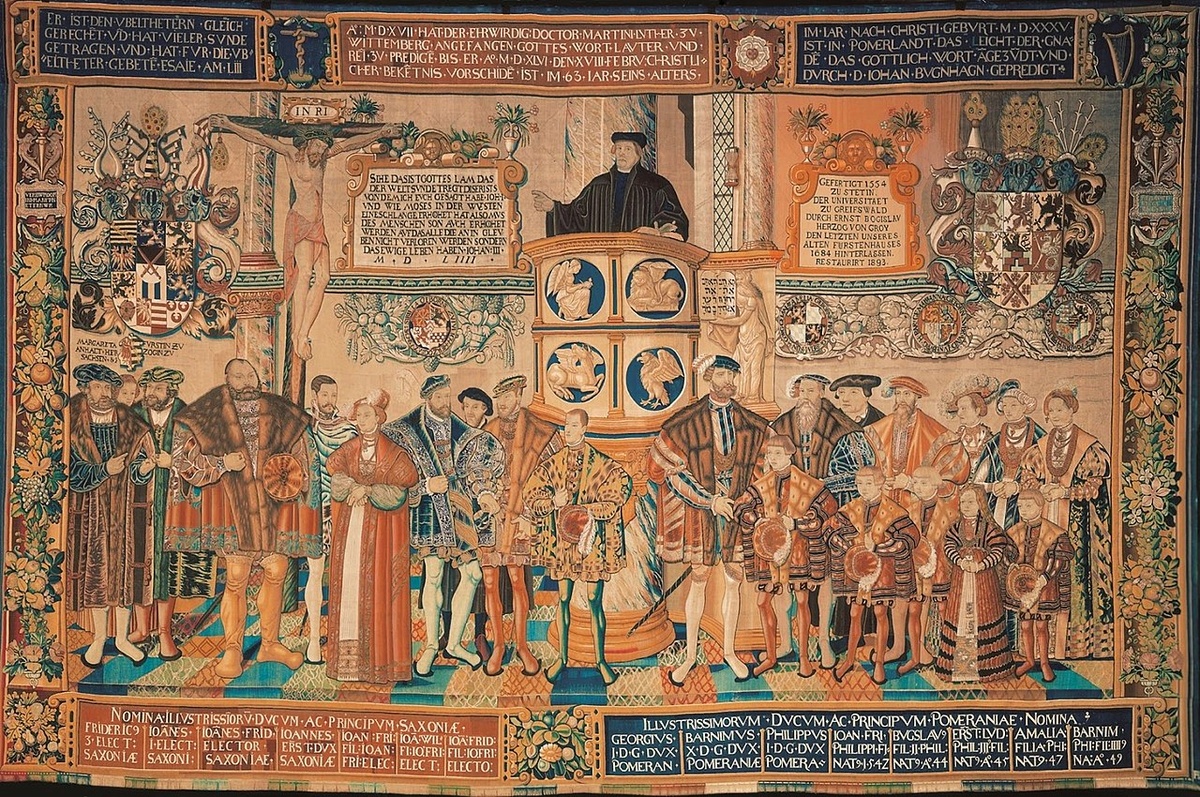 ER · IST · DEN · VBELTHETERN · GLEICH
GERECHET · VD · HAT · VIELER · SVNDE
GETRAGEN · VND · HAT · FVR · DIE · VB
ELTHETER · GEBETE · ESAIE · AM · LIII
Aº · M · D · XVII · HAT · DER · EHRWIRDIG · DOCTOR · MARTIN · LVTHER · ZV
WITTEMBERG · ANGEFANGEN · GOTTES · WORT · LAVTER · VND
REI · ZV · PREDIGE · BIS · ER · Aº · M · D · XLVI · DEN · XVIII · FEBRV · CHRISTLI
CHER · BEKĒTNIS · VORSCHIDĒ · IST · IM · 63 · IAR · SEINS · ALTERS
IM · IAR · NACH · CHRISTI · GEBVRT · M · D · XXXV
IST · IN · POMERLANDT · DAS · LEICHT · DER · GNA
DĒ · DAS · GOTTLICH · WORT · AGEZVDT · VND
DVRCH · D · IOHAN · BVGNHAGN · GEPREDIGT
INRI
SIHE DAS IST GOTTES LAM DAS
DER WELT SVNDE TREGT DISER ISTS
VON DEM ICH EVCH GESAGT HABE · IOH · I
VND WIE MOSES IN DER WVSTEN
EINE SCHLANGE ERHOHET HAT ALSO MVS
DES MENSCHEN SON AVCH ERHOHET
WERDEN AVF DAS ALLE DIE AN IN GLEV
BEN NICHT VERLORN WERDEN SONDERN
DAS EWIGE LEBEN HABEN IOHAN · III ·
M · D · LIIII ·
GEFERTIGT 1554
ZU STETIN.
DER UNIVERSITAET
ZU GREIFSWALD
DURCH ERNST BOGISLAV
HERZOG VON CROY
DEN LETZTEN UNSERES
ALTEN FURSTENHAUSES
1684 HINTERLASSEN.
RESTAURIRT 1893.
MARGARETA FVRSTIN ZV
ANHALT · HER ZOGIN ZV
SACHSEN
NOMINA · ILLVSTRISSIORV̄ · DVCVM · AC · PRINCIPVM · SAXONIÆ
FRIDERIC9 IOĀNES IOANNES · FRID · IOANNES IOAN IOA · WIL IOĀ · FRID
3 · ELECT · I · ELECT · ELECTOR ERNST · DVX FIL · IOAN FI · IO · FRI · FIL · IO · FRI
SAXONIÆ SAXONI · SAXONIAE SAXONIAE FRI · ELEC · ELECT · ELECTO ·
ILLVSTRISSIMORVM · DVCVM · AC · PRINCIPVM · POMERANIAE · NOMINA
GEORGIVS BARNIMVS PHILIPPVS IOAN · FRI BVGSLAV9 ERST · LVD AMALIA BARNIM
I · D · G · DVX X · D · G · DVX I · D · G · DVX PHILIPPI · F PHIL · PHI · FIL FILIA · PHI
POMERAN POMERANIÆ POMERA NAT9 · 1542 NAT9 · Aº 44 NAT9 · Aº · 45 NAT9 · 47 NA · Aº · 49